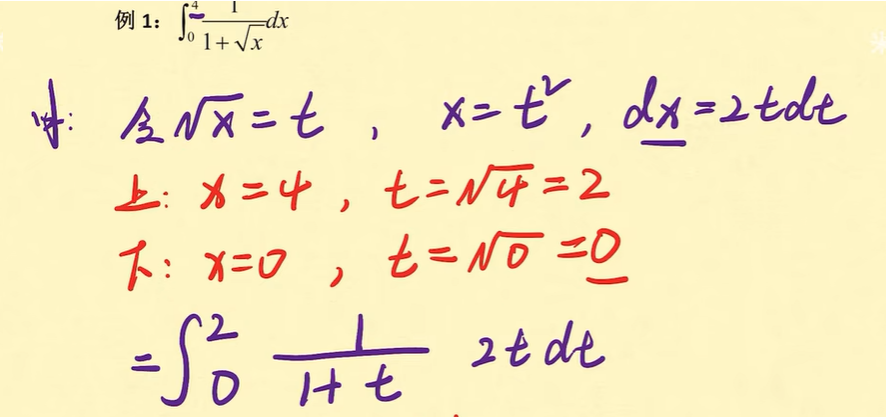 例 1： ∫₀⁴ 1/(1+√x) dx
解: 令√x = t , x = t², dx = 2tdt
上: x = 4 , t = √4 = 2
下: x = 0 , t = √0 = 0
= ∫₀² 1/(1+t) 2t dt